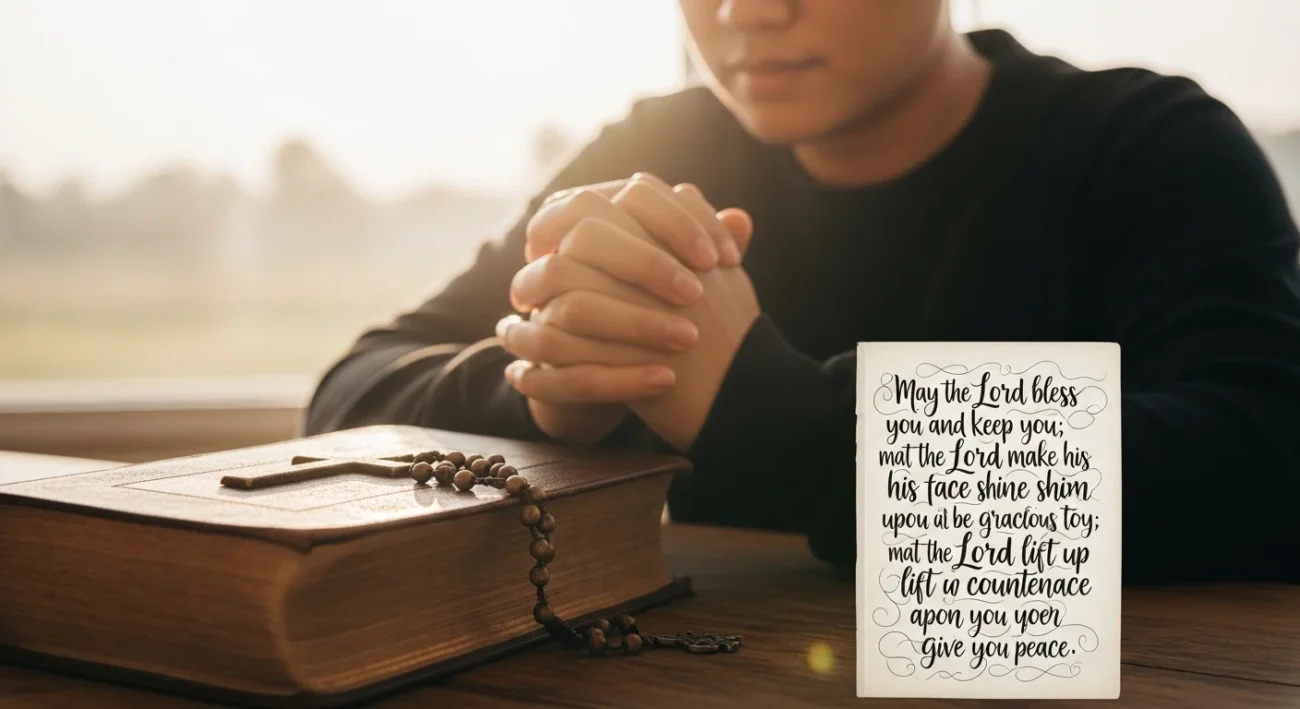 May the Lord bless
you and keep you;
mat the Lord make his
his face shine shim
upou al be gracious toy;
mat the Lord lift up
lift w countenace
apon you yoer
give you peace.